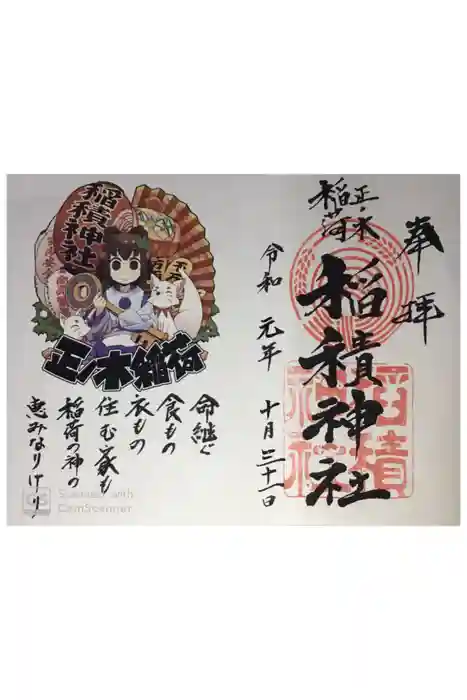 奉拝
正ノ木
稲荷
稲積神社
令和元年十月三十一日
稲積神社
正ノ木稲荷
命継ぐ
食もの
衣もの
住む家も
稲荷の神の
恵みなりけり
CS Scanned with
CamScanner